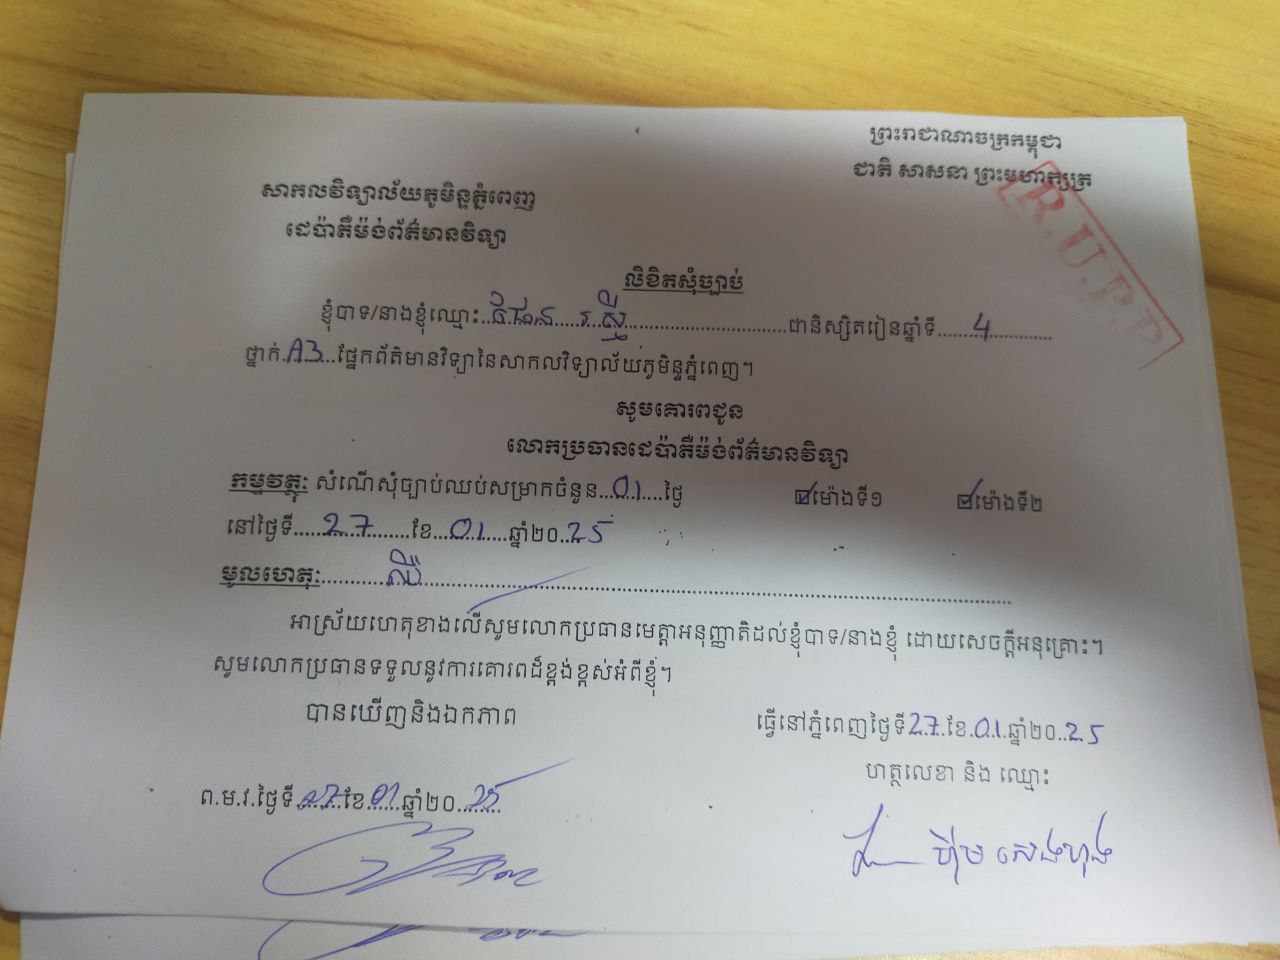 ព្រះរាជាណាចក្រកម្ពុជា
ជាតិ សាសនា ព្រះមហាក្សត្រ
R.U.P.P
សាកលវិទ្យាល័យភូមិន្ទភ្នំពេញ
ដេប៉ាតឺម៉ង់ព័ត៌មានវិទ្យា
លិខិតសុំច្បាប់
ខ្ញុំបាទ/នាងខ្ញុំឈ្មោះ រស្មី ជានិស្សិតរៀនឆ្នាំទី 4
ថ្នាក់ A3 ផ្នែកព័ត៌មានវិទ្យានៃសាកលវិទ្យាល័យភូមិន្ទភ្នំពេញ។
សូមគោរពជូន
លោកប្រធានដេប៉ាតឺម៉ង់ព័ត៌មានវិទ្យា
កម្មវត្ថុ: សំណើសុំច្បាប់ឈប់សម្រាកចំនួន 01 ថ្ងៃ ម៉ោងទី១ ម៉ោងទី២
នៅថ្ងៃទី 27 ខែ 01 ឆ្នាំ២០ 25
មូលហេតុ: ឈឺ
អាស្រ័យហេតុខាងលើសូមលោកប្រធានមេត្តាអនុញ្ញាតិដល់ខ្ញុំបាទ/នាងខ្ញុំ ដោយសេចក្តីអនុគ្រោះ។
សូមលោកប្រធានទទួលនូវការគោរពដ៏ខ្ពង់ខ្ពស់អំពីខ្ញុំ។
បានឃើញនិងឯកភាព
ធ្វើនៅភ្នំពេញថ្ងៃទី 27 ខែ 01 ឆ្នាំ២០ 25
ហត្ថលេខា និង ឈ្មោះ
ព.ម.វ.ថ្ងៃទី 27 ខែ 01 ឆ្នាំ២០ 25
ហ៊ីម សេងហុង